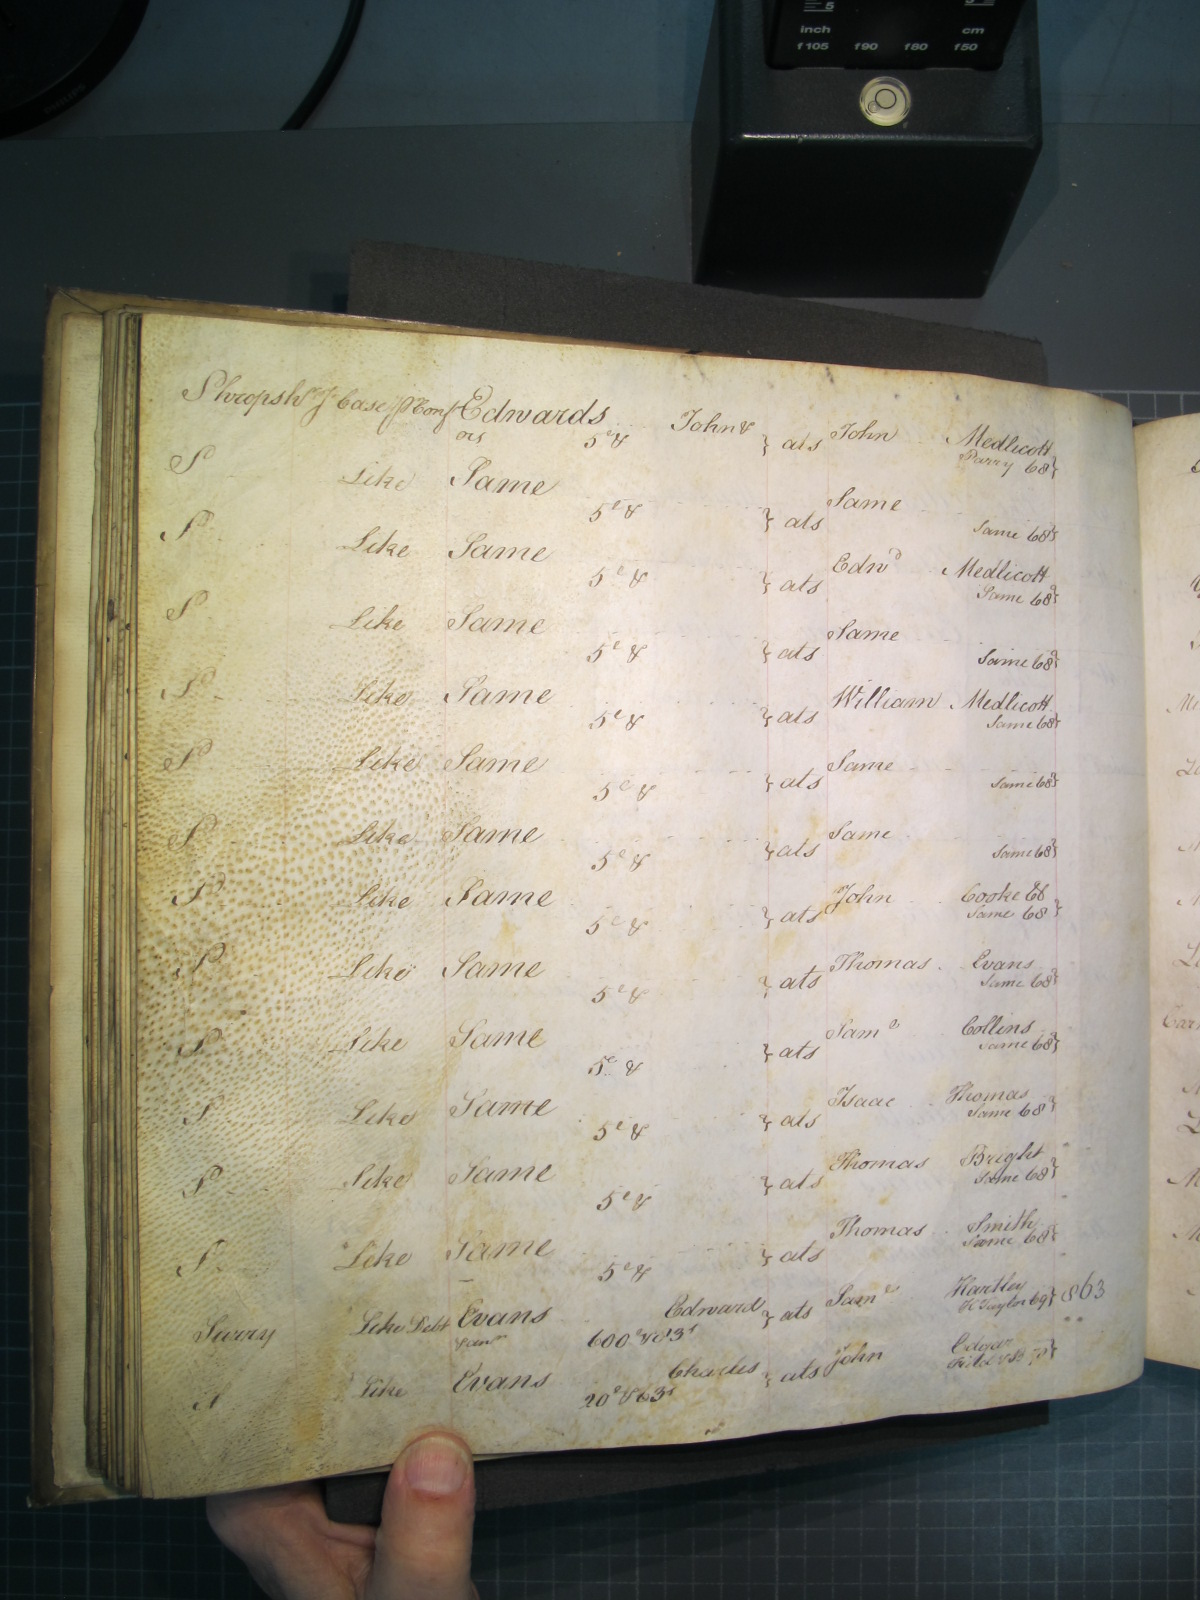 5
inch cm
f105 f90 f80 f50
Shropsh^r J Case Edwards John & } ats John Medlicott
ors 5^s & Parry 68}
S Like Same 5^s & } ats Same Same 68}
S Like Same 5^s & } ats Edw^d Medlicott Same 68}
S Like Same 5^s & } ats Same Same 68}
S Like Same 5^s & } ats William Medlicott Same 68}
S Like Same 5^s & } ats Same Same 68}
S Like Same 5^s & } ats Same Same 68}
S Like Same 5^s & } ats John Cooke Same 68}
S Like Same 5^s & } ats Thomas Evans Same 68}
S Like Same 5^s & } ats Sam^l Collins Same 68}
S Like Same 5^s & } ats Isaac Thomas Same 68}
S Like Same 5^s & } ats Thomas Bright Same 68}
S Like Same 5^s & } ats Thomas Smith Same 68}
Surry Like Debt Evans Edward } ats Sam^l Hartley 1863
600^s & 83^s Taylor 69}
S Like Evans Charles } ats John
20^s & 63^s